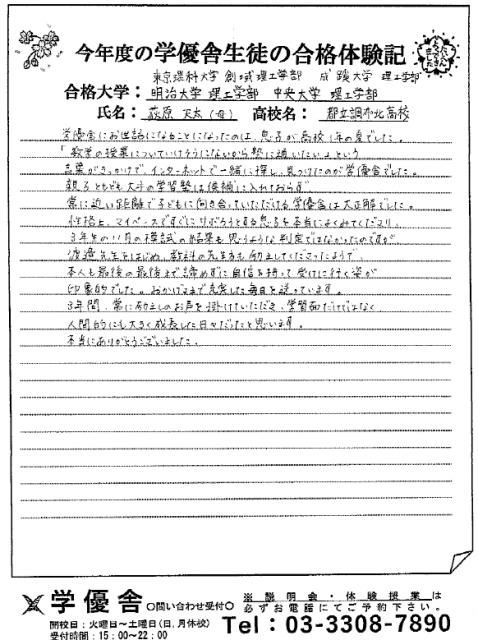 今年度の学優舎生徒の合格体験記
東京理科大学 創域理工学部 成蹊大学 理工学部
合格大学：明治大学 理工学部 中央大学 理工学部
氏名：荻原 天太（母） 高校名：都立調布北高校
学優舎にお世話になることになったのは、息子が高校1年の夏でした。
「数学の授業についていけそうにないから塾に通いたい」という
言葉がきっかけで、インターネットで一緒に探し、見つけたのが学優舎でした。
親子ともども大手の学習塾は候補に入れておらず、
常に近い距離で子どもに向き合っていただける学優舎は大正解でした。
性格上、マイペースですぐにサボろうとする息子を本当によくみてくださり、
3年生の11月の模試の結果も思うような判定ではなかったのですが、
渡邉先生をはじめ、教科の先生方も励ましてくださったようで、
本人も最後の最後まで諦めずに自信を持って受けに行く姿が
印象的でした。おかげさまで充実した毎日を送っています。
3年間、常に励ましのお声を掛けていただき、学習面だけではなく
人間的にも大きく成長した日々だったと思います。
本当にありがとうございました。
学優舎 ○問い合わせ受付○
※説明会・体験授業は
必ずお電話にてご予約下さい。
開校日：火曜日～土曜日（日、月休校）
受付時間：15：00～22：00
Tel：03-3308-7890